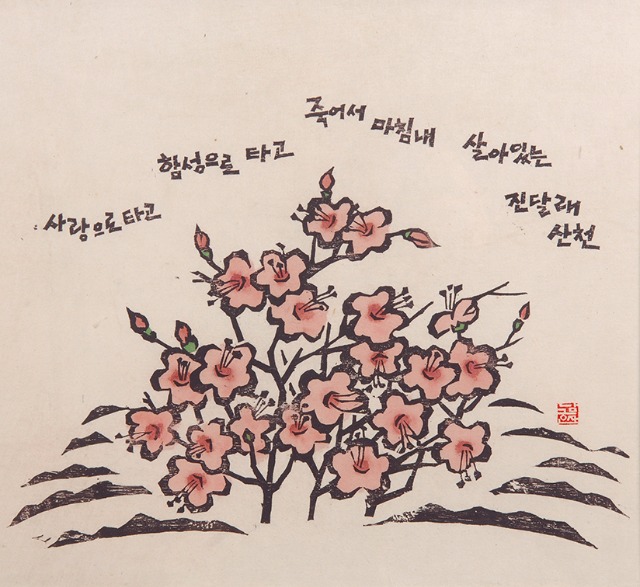 사랑으로 타고
함성으로 타고
죽어서 마침내
살아있는
진달래
산천